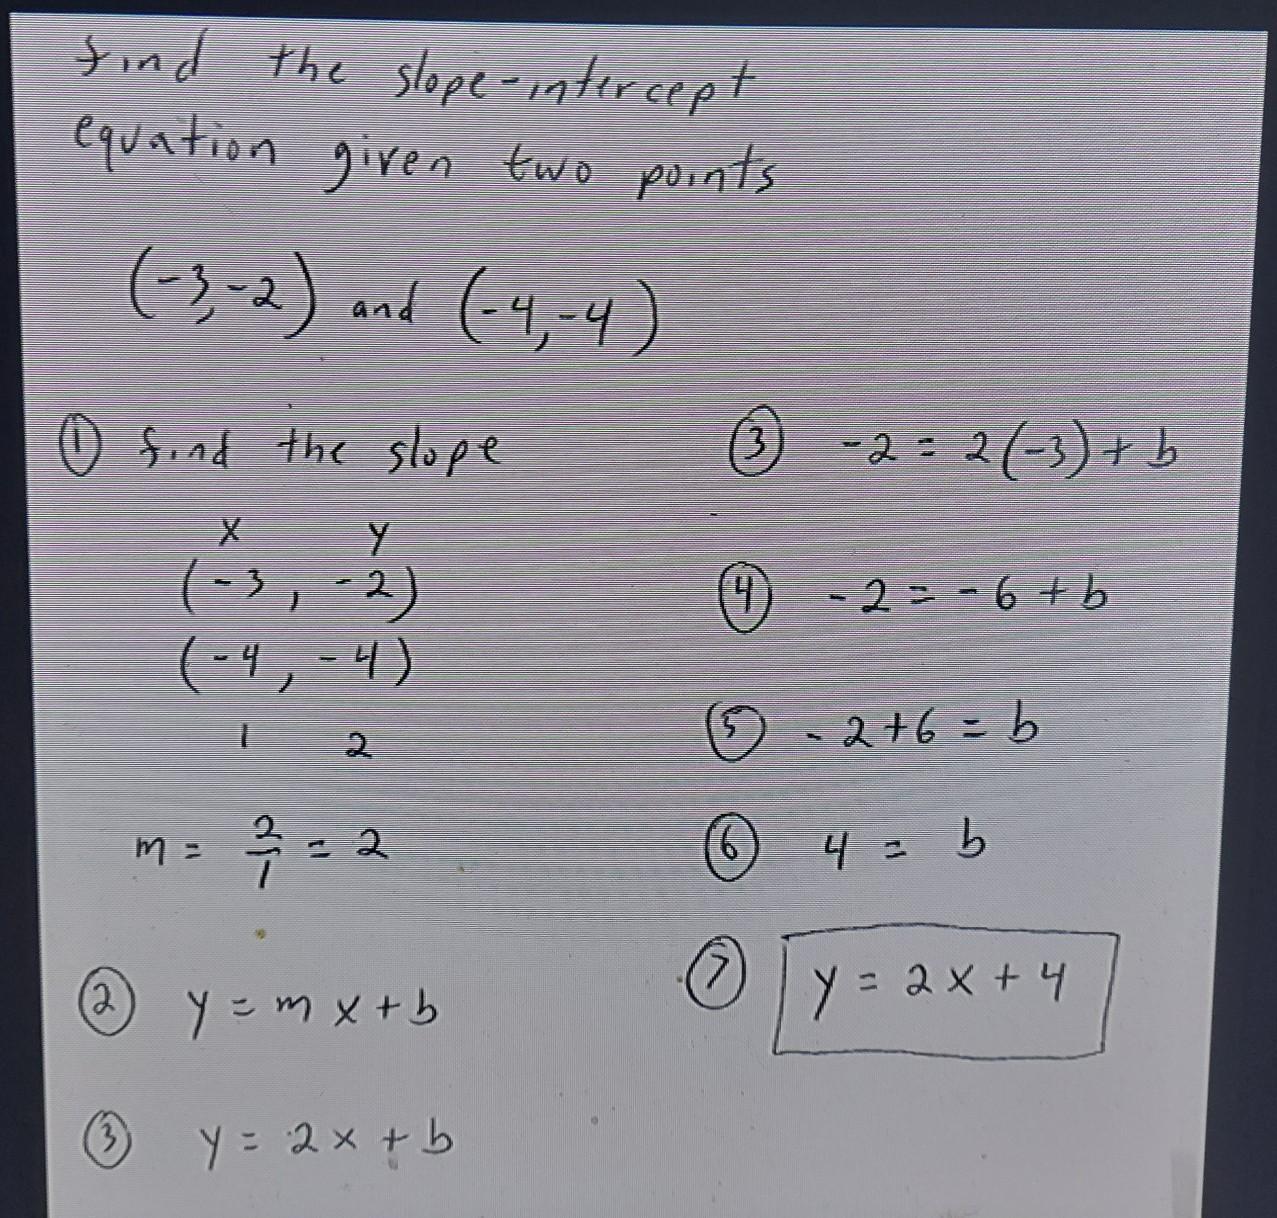 find the slope-intercept
equation given two points
(-3,-2) and (-4,-4)
① find the slope
x y
(-3, -2)
(-4, -4)
1 2
m = 2/1 = 2
② y = mx + b
③ y = 2x + b
③ -2 = 2(-3) + b
④ -2 = -6 + b
⑤ -2+6 = b
⑥ 4 = b
⑦ y = 2x + 4